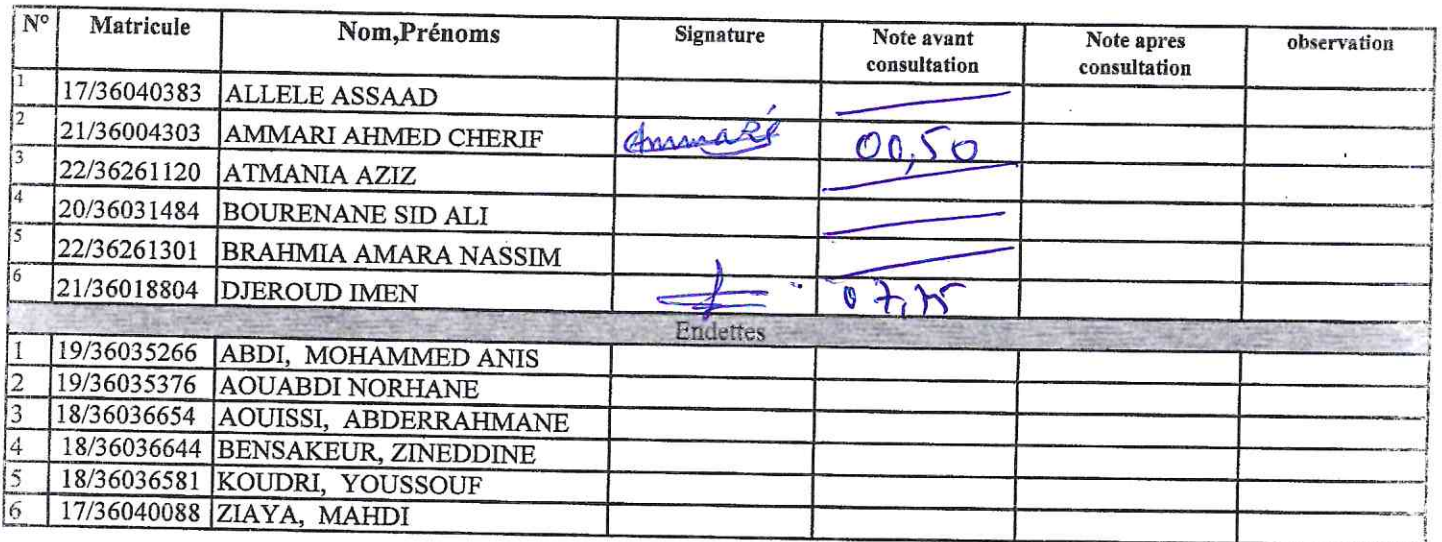 N° Matricule Nom,Prénoms Signature Note avant consultation Note apres consultation observation
1 17/36040383 ALLELE ASSAAD
2 21/36004303 AMMARI AHMED CHERIF Ammari 00,50
3 22/36261120 ATMANIA AZIZ
4 20/36031484 BOURENANE SID ALI
5 22/36261301 BRAHMIA AMARA NASSIM
6 21/36018804 DJEROUD IMEN 07,75
Endettes
1 19/36035266 ABDI, MOHAMMED ANIS
2 19/36035376 AOUABDI NORHANE
3 18/36036654 AOUISSI, ABDERRAHMANE
4 18/36036644 BENSAKEUR, ZINEDDINE
5 18/36036581 KOUDRI, YOUSSOUF
6 17/36040088 ZIAYA, MAHDI